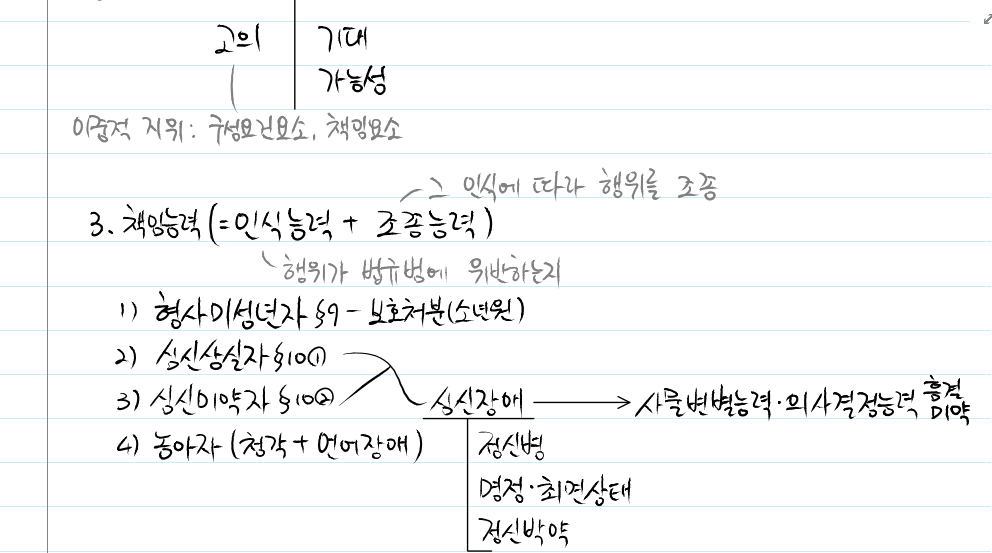 고의 기대
가능성
이중적 지위: 구성요건요소, 책임요소
그 인식에 따라 행위를 조종
3. 책임능력 (= 인식능력 + 조종능력)
행위가 법규범에 위반하는지
1) 형사미성년자 §9 - 보호처분(소년원)
2) 심신상실자 §10①
3) 심신미약자 §10②
심신장애 → 사물변별능력·의사결정능력 흠결
미약
4) 농아자 (청각 + 언어장애)
정신병
명정·최면상태
정신박약